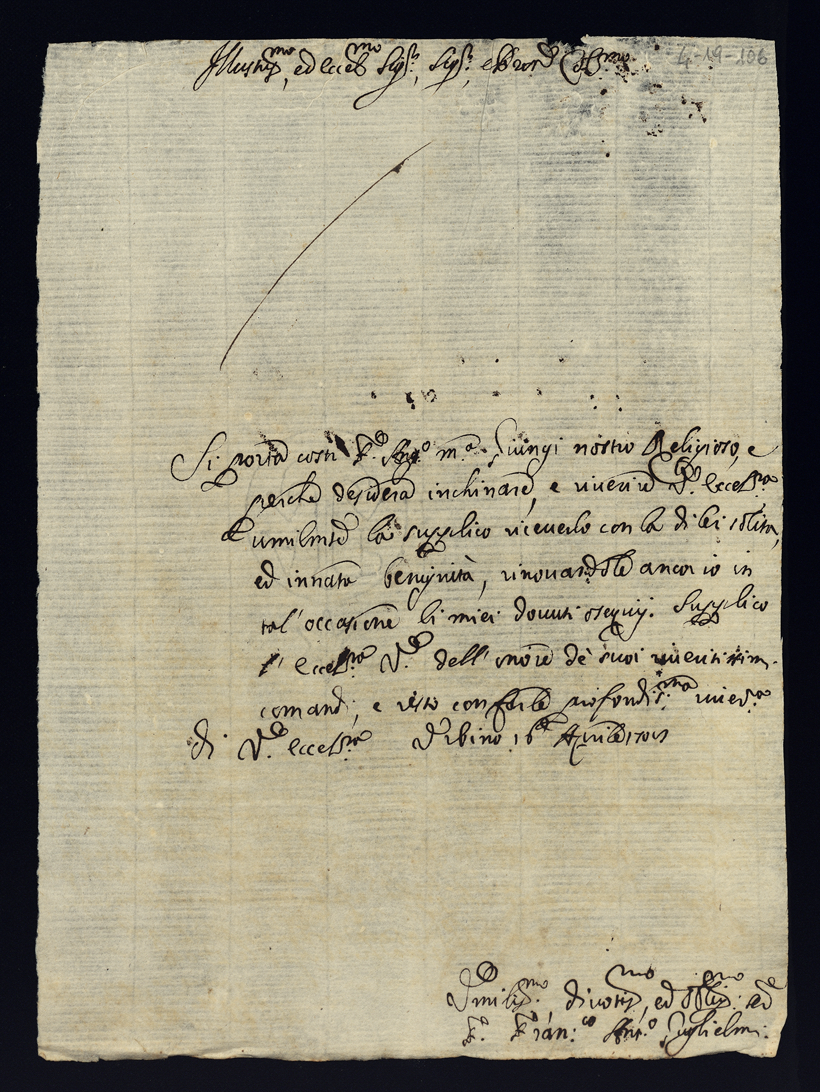 Illustr.mo, ed Eccel.mo Sig.r, Sig.r, e Pron.
4-19-106
Si porta costì P. Ang.o M.a Giungi nostro Religioso, e
perche desidera inchinare, e riverire V.a Eccel.za
umilmte la supplico riceverlo con la di lei solita,
ed innata benignità, rinovandole ancor io in
tal' occasione li miei dovuti ossequij. Supplico
l' Eccel.za V.a dell' onore de suoi riveritissimi
comandi, e resto con farle profondis.ma river.a
di V.a Eccel.za Urbino 16 Aprile
Umiliss.mo divotiss.mo, ed obblig.mo
F. Fran.co Ant.o Guglielmi